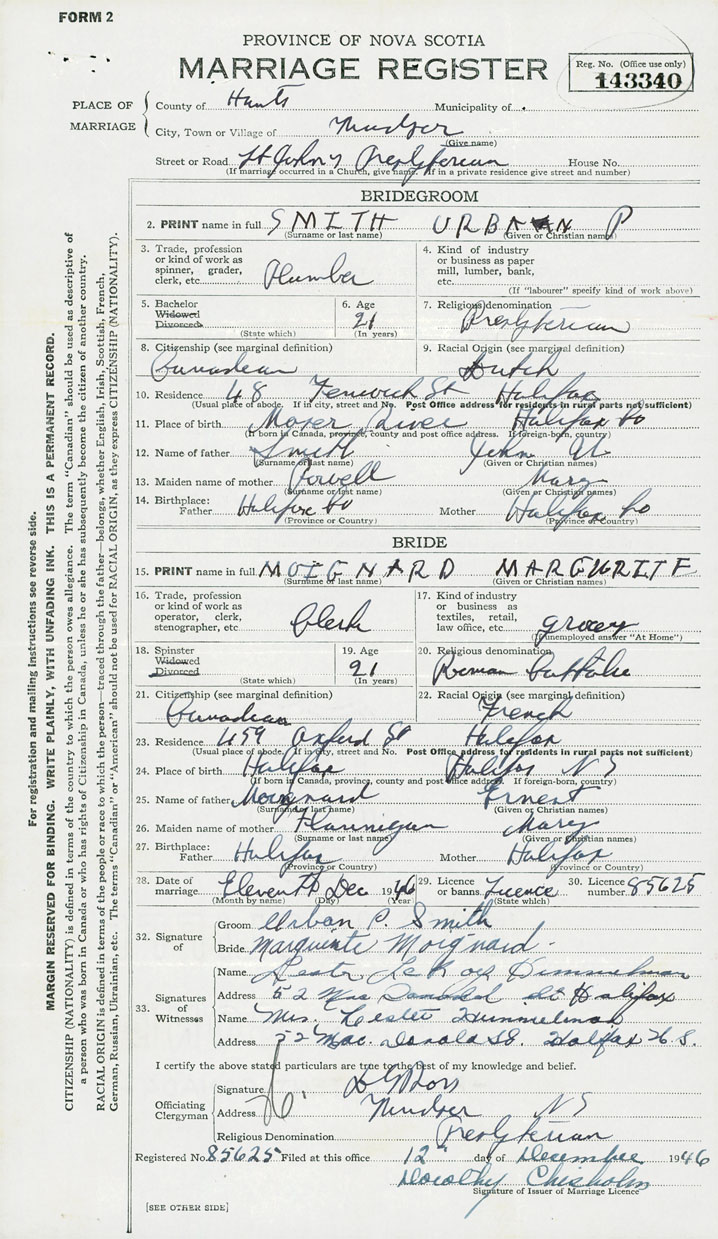 FORM 2
PROVINCE OF NOVA SCOTIA
MARRIAGE REGISTER
Reg. No. (Office use only)
143340
PLACE OF MARRIAGE
County of Hants Municipality of
City, Town or Village of Windsor
(Give name)
Street or Road St John's Presbyterian House No.
(If marriage occurred in a Church, give name. If in a private residence give street and number)
BRIDEGROOM
2. PRINT name in full SMITH URBAN P
(Surname or last name) (Given or Christian names)
3. Trade, profession or kind of work as spinner, grader, clerk, etc. Plumber
4. Kind of industry or business as paper mill, lumber, bank, etc.
(If "labourer" specify kind of work above)
5. Bachelor Widowed Divorced (State which)
6. Age 21 (In years)
7. Religious denomination Presbyterian
8. Citizenship (see marginal definition) Canadian
9. Racial Origin (see marginal definition) Dutch
10. Residence 48 Fenwick St Halifax
(Usual place of abode. If in city, street and No. Post Office address for residents in rural parts not sufficient)
11. Place of birth Moser River Halifax Co
(If born in Canada, province, county and post office address. If foreign-born, country)
12. Name of father Smith John
(Surname or last name) (Given or Christian names)
13. Maiden name of mother Powell Mary
(Surname or last name) (Given or Christian names)
14. Birthplace: Father Halifax Co Mother Halifax Co
(Province or Country) (Province or Country)
BRIDE
15. PRINT name in full MOIGNARD MARGURITE
(Surname or last name) (Given or Christian names)
16. Trade, profession or kind of work as operator, clerk, stenographer, etc Clerk
17. Kind of industry or business as textiles, retail, law office, etc. grocery
(If unemployed answer "At Home")
18. Spinster Widowed Divorced (State which)
19. Age 21 (In years)
20. Religious denomination Roman Catholic
21. Citizenship (see marginal definition) Canadian
22. Racial Origin (see marginal definition) French
23. Residence 459 Oxford St Halifax
(Usual place of abode. If in city, street and No. Post Office address for residents in rural parts not sufficient)
24. Place of birth Halifax Halifax NS
(If born in Canada, province, county and post office address. If foreign-born, country)
25. Name of father Moignard Ernest
(Surname or last name) (Given or Christian names)
26. Maiden name of mother Flannigan Mary
(Surname or last name) (Given or Christian names)
27. Birthplace: Father Halifax Mother Halifax
(Province or Country) (Province or Country)
28. Date of marriage Eleventh Dec 1946
(Month by name) (Day) (Year)
29. Licence or banns Licence (State which)
30. Licence number 85625
32. Signature of
Groom Urban P. Smith
Bride Marguerite Moignard
33. Signatures of Witnesses
Name Lester LeRoy Himmelman
Address 52 Mac Donald St Halifax
Name Mrs. Lester Himmelman
Address 52 Mac. Donald St. Halifax N.S.
I certify the above stated particulars are true to the best of my knowledge and belief.
Officiating Clergyman
Signature
Address Windsor NS
Religious Denomination Presbyterian
Registered No. 85625 Filed at this office 12 day of December 1946
Dorothy Chisholm
Signature of Issuer of Marriage Licence
[SEE OTHER SIDE]
For registration and mailing instructions see reverse side.
MARGIN RESERVED FOR BINDING. WRITE PLAINLY, WITH UNFADING INK. THIS IS A PERMANENT RECORD.
CITIZENSHIP (NATIONALITY) is defined in terms of the country to which the person owes allegiance. The term "Canadian" should be used as descriptive of
a person who was born in Canada or who has rights of Citizenship in Canada, unless he or she has subsequently become the citizen of another country.
RACIAL ORIGIN is defined in terms of the people or race to which the person—traced through the father—belongs, whether English, Irish, Scottish, French,
German, Russian, Ukrainian, etc. The terms "Canadian" or "American" should not be used for RACIAL ORIGIN, as they express CITIZENSHIP (NATIONALITY).